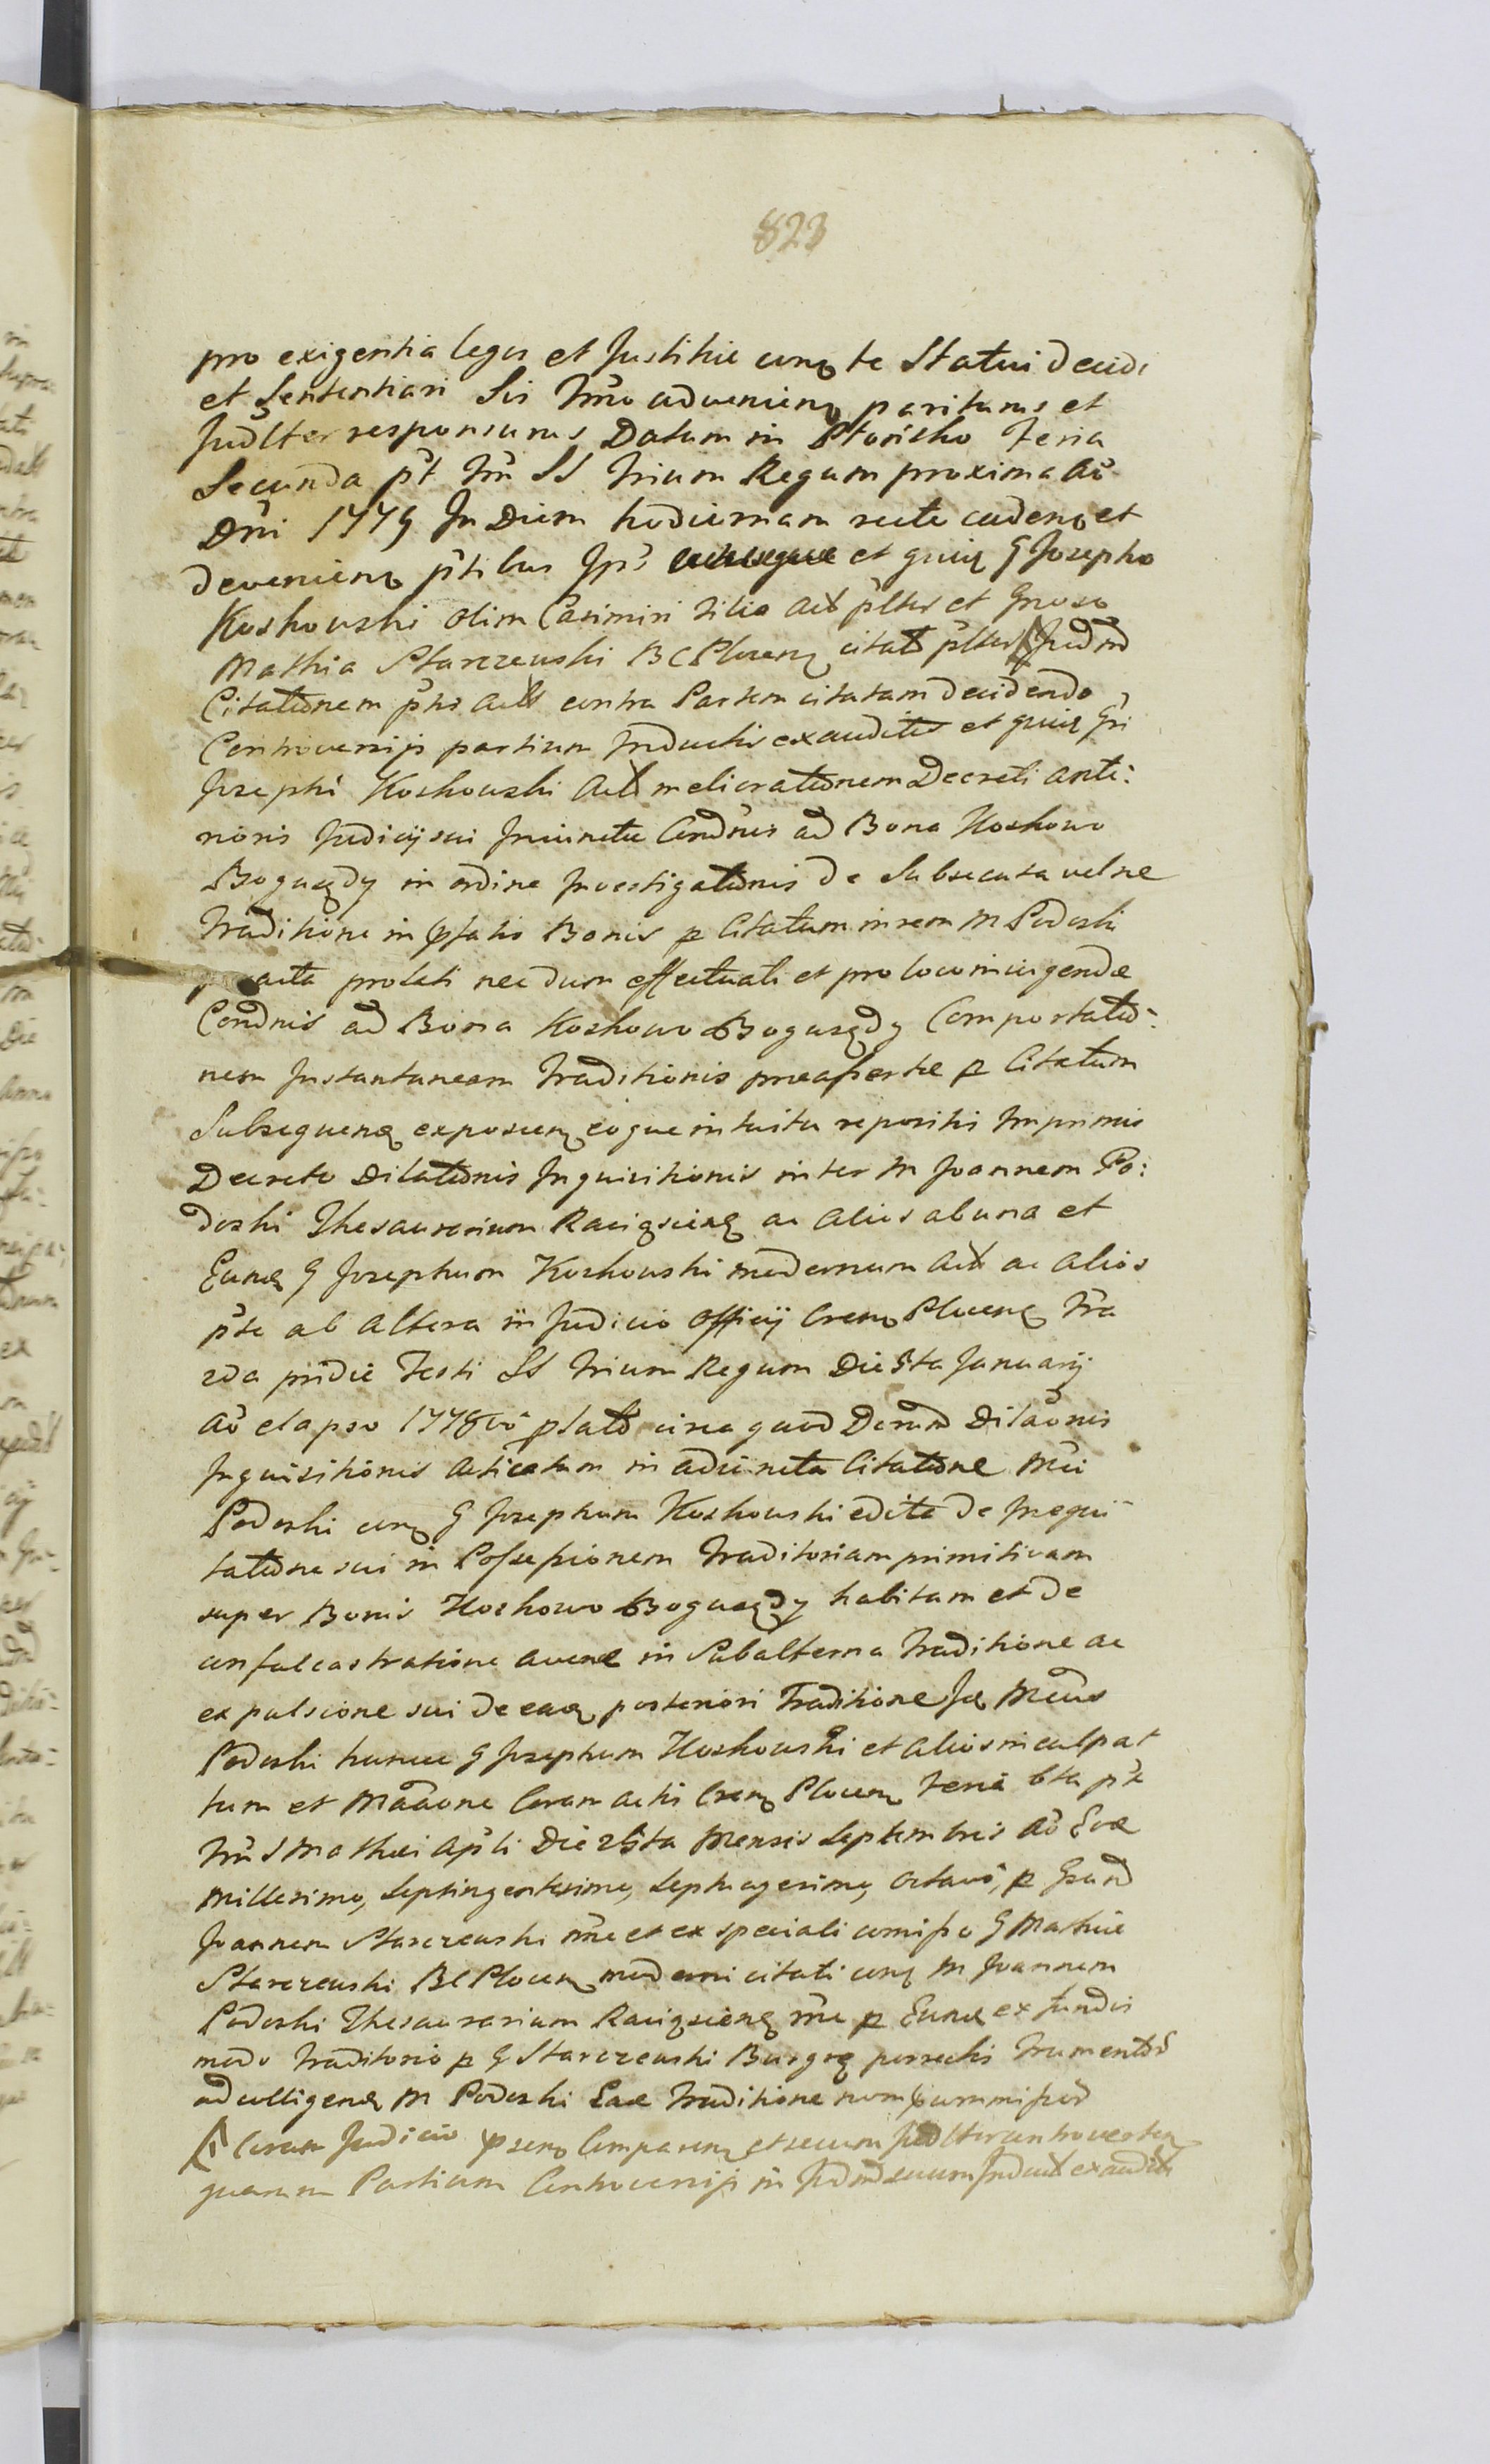 823
pro exigentia legis et Justitiæ conq te Statui decidi
et Sententiari Sis Tmo advenienq pariturus et
Judlter responsurus Datum in Feria
Secunda pt tm SS Trium Regum proxima Ao
Dni 1779 In Diem hodiernam recte cadenq et
devenienq ptibus Ips et quiq G Josepho
Koskowski olim Casimiri filio Act plter et Gnoso
Mathia Starczewski BC Plocenq citat plter Judm
Citationem pns Act contra Partem citatam decidendo
Controversijs partium Inductis exauditis et quiq Gi
Josephi Koskowski Act meliorationem Decreti Ante:
rioris Judicij sui Iniunctæ Condnis ad Bona Koskowo
Bogusędy in ordine Investigationis de Subsecuta velne
Traditione in pfatis Bonis p Citatum in rem M Podoski
acta prolati nec dum effectuati et pro loco iniungendæ
Condnis ad Bona Koskowo Bogusędy Comportatio-
nem Instantaneam Traditionis præassertæ p Citatum
Subsequenq exposcenq eoque intuitu repositis Imprimis
Decreto Dilationis Inquisitionis inter M Joannem Po:
doski Thesaurarium Raciązsienq ac Alios ab una et
Eunq G Josephum Koskowski modernum Act ac alios
pte ab Altera in Judicio Officij Crenq Plocenq Fra
2da pridie Festi SS Trium Regum Die 5ta Januarij
Ao elapso 1778vo plato circa quod Demum Dilaonis
Inquisitionis Acticatum in adiuncta Citatione Mci
Podoski conq G Josephum Koskowski edita de Inequi-
tatione sui in Possessionem Traditoriam primitivam
super Bonis Koskowo Bogusędy habitam et de
confulcastratione avenæ in Subalterna Traditione ac
expulsione sui de eaq posteriori Traditione Iq Mcus
Podoski huncce G Josephum Koskowski et alios inculpat
tum et Maaone Coram actis Crenq Plocenq Feria 6ta pt
tm S Mathæi Apli Die 25ta Mensis Septembris Ao Eoæ
Millesimo, Septingentesimo, Septuagesimo, Octavo, p Gsum
Joannem Starczewski nne et ex speciali comisso G Mathiæ
Starczewski BC Plocenq moderni citati conq M Joannem
Podoski Thesaurarium Raciązsienq rne p Eunq ex fundis
modo Traditorio p G Starczewski Burggq porrectis frumentos
adcolligenq M Podoski Eaæ Traditione non
Coram Judicio psenq Comparenq et secum Judlter controverten
quarum Partium Controversijs in Judm suum Induct exaudit